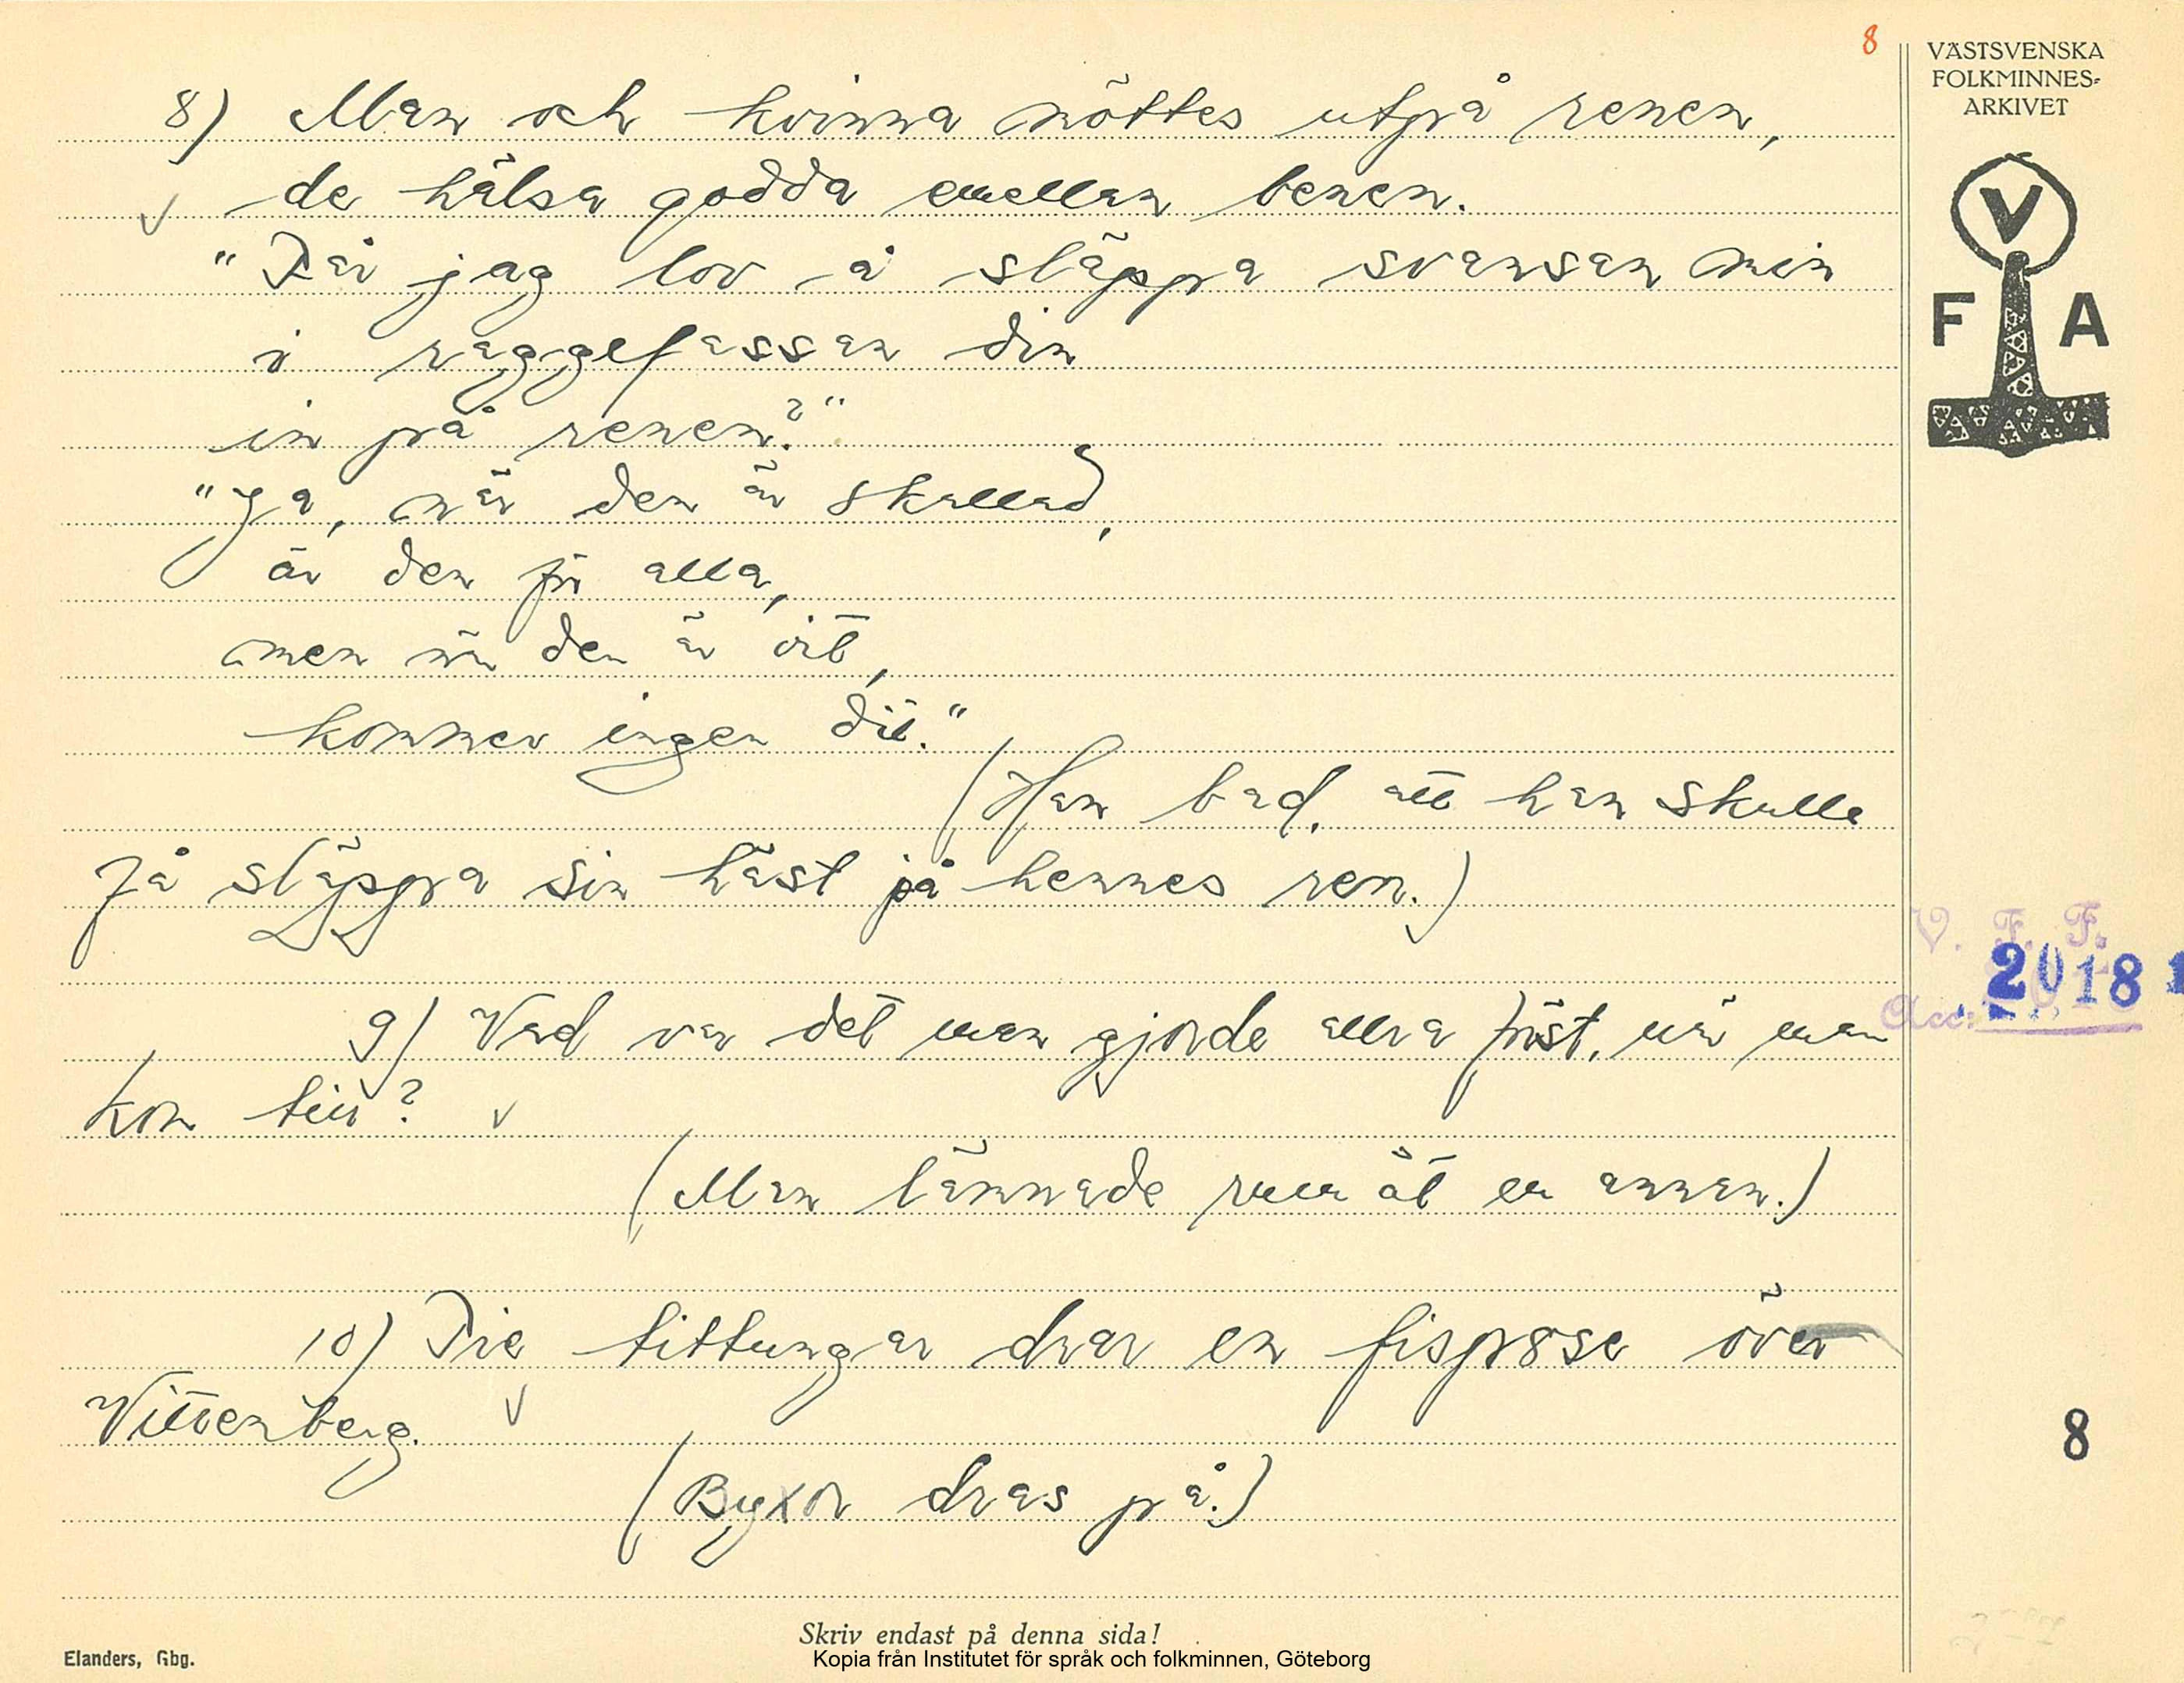 8
VÄSTSVENSKA
FOLKMINNES-
ARKIVET
V
F A
8) Man och kvinna möttes utpå renen,
de hälsa godda emellan benen.
"Får jag lov å släppa svansen min
i raggefassan din
in på renen?"
"Ja, när den är skallad,
är den för alla,
men när den är
kommer ingen dit."
(Han bad, att han skulle
få släppa sin häst på hennes ren.)
9) Vad var det man gjorde allra först, när man
kom till?
(Man lämnade rum åt en annan.)
10) Tie tittungar drar en fisprose över
Vittenberg.
(Byxor dras på.)
V. F. F.
Acc: 2018
8
Skriv endast på denna sida!
Elanders, Gbg.
Kopia från Institutet för språk och folkminnen, Göteborg